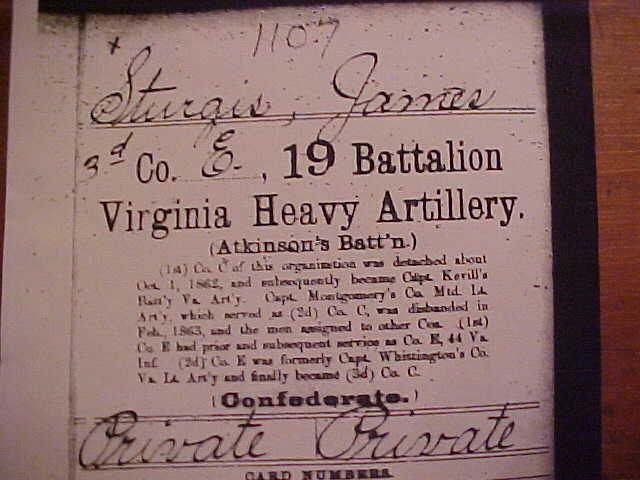 x 1107
Sturgis, James
3d Co. E., 19 Battalion
Virginia Heavy Artillery.
(Atkinson's Batt'n.)
(1st) Co. C of this organization was detached about
Oct. 1, 1862, and subsequently became Capt. Kevill's
Batt'y Va. Art'y. Capt. Montgomery's Co. Mtd. Lt.
Art'y, which served as (2d) Co. C, was disbanded in
Feb., 1863, and the men assigned to other Cos. (1st)
Co. E had prior and subsequent service as Co. E, 44 Va.
Inf. (2d) Co. E was formerly Capt. Whistington's Co.
Va. Lt. Art'y and finally became (3d) Co. C.
(Confederate.)
Private Private
CARD NUMBERS.